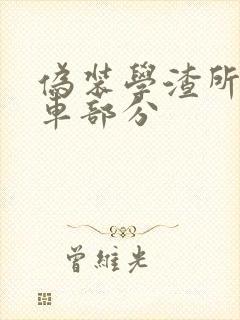 偽裝學渣所
車部分
曾維光